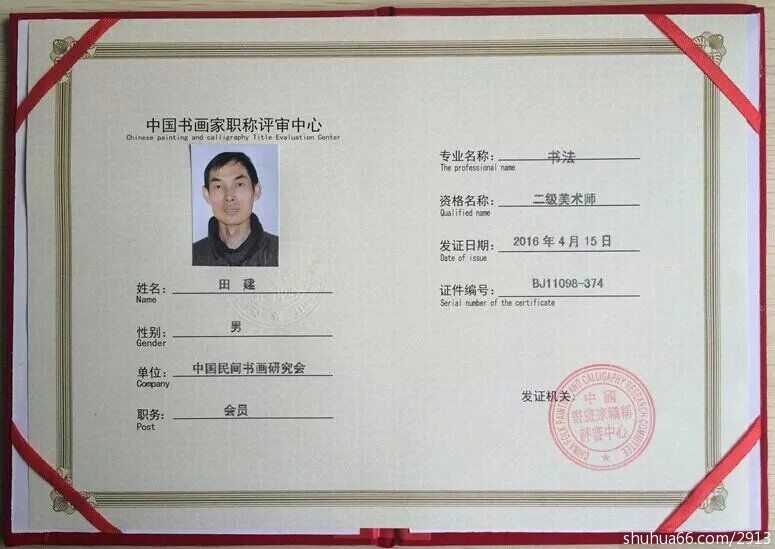 中国书画家职称评审中心
Chinese painting and calligraphy Title Evaluation Center
姓名: 田 建
Name
性别: 男
Gender
单位: 中国民间书画研究会
Company
职务: 会员
Post
专业名称: 书法
The professional name
资格名称: 二级美术师
Qualified name
发证日期: 2016 年 4 月 15 日
Date of issue
证件编号: BJ11098-374
Serial number of the certificate
发证机关:
CHINA FOLK PAINTING AND CALLIGAPHY RESEARCH COMMITTEE
中國
書畫家職稱
評審中心
shuhua66.com/2913